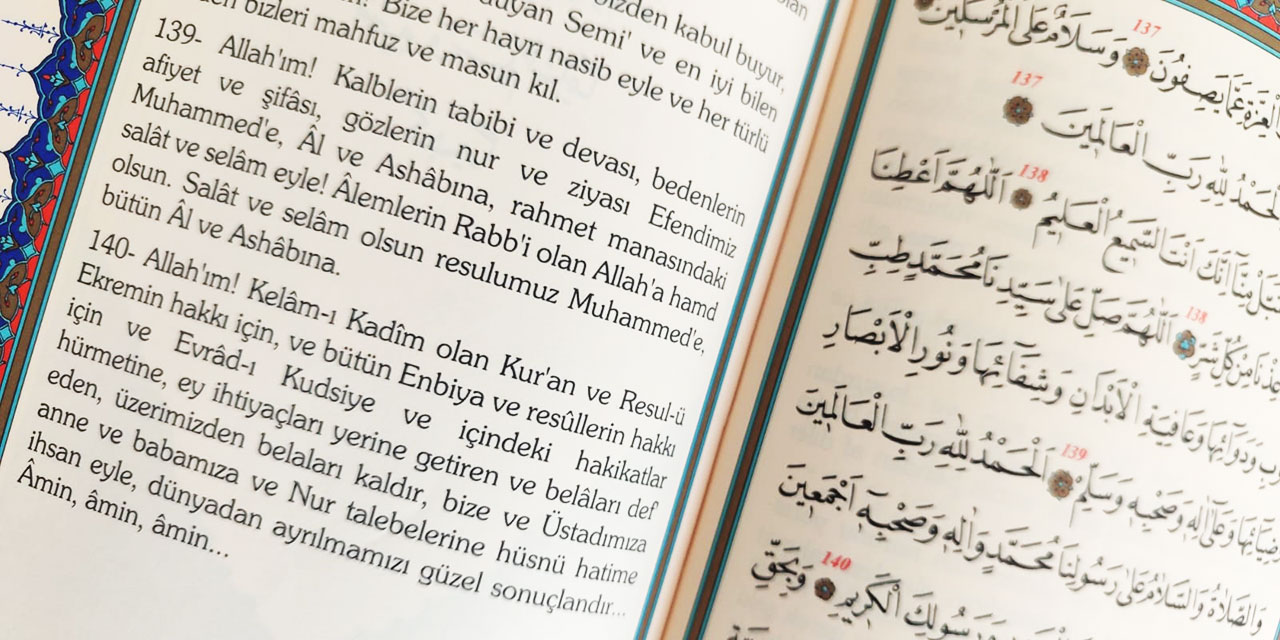 bizden kabul buyur,
duyan Semi' ve en iyi bilen
Bize her hayrı nasib eyle ve her türlü
bizleri mahfuz ve masun kıl.
139- Allah'ım! Kalblerin tabibi ve devası, bedenlerin
afiyet ve şifâsı, gözlerin nur ve ziyası Efendimiz
Muhammed'e, Âl ve Ashâbına, rahmet manasındaki
salât ve selâm eyle! Âlemlerin Rabb'i olan Allah'a hamd
olsun. Salât ve selâm olsun resulumuz Muhammed'e,
bütün Âl ve Ashâbına.
140- Allah'ım! Kelâm-ı Kadîm olan Kur'an ve Resul-ü
Ekremin hakkı için, ve bütün Enbiya ve resûllerin hakkı
için ve Evrâd-ı Kudsiye ve içindeki hakikatlar
hürmetine, ey ihtiyaçları yerine getiren ve belâları def
eden, üzerimizden belaları kaldır, bize ve Üstadımıza
anne ve babamıza ve Nur talebelerine hüsnü hatime
ihsan eyle, dünyadan ayrılmamızı güzel sonuçlandır...
Âmin, âmin, âmin...
الْعِزَّةِ عَمَّا يَصِفُونَ 137 وَسَلَامٌ عَلَى الْمُرْسَلِينَ
لِلّٰهِ رَبِّ الْعَالَمِينَ 137
مِنَّا اِنَّكَ اَنْتَ السَّمِيعُ الْعَلِيمُ 138 اَللّٰهُمَّ اَعْطِنَا
مِنْ كُلِّ شَرٍّ 138 اَللّٰهُمَّ صَلِّ عَلٰى سَيِّدِنَا مُحَمَّدٍ طِبِّ
وَدَوَائِهَا وَعَافِيَةِ الْاَبْدَانِ وَشِفَائِهَا وَنُورِ الْاَبْصَارِ
وَضِيَائِهَا وَعَلٰى اٰلِهِ وَصَحْبِهِ وَسَلِّمْ 139 اَلْحَمْدُ لِلّٰهِ رَبِّ الْعَالَمِينَ
وَالصَّلَاةُ وَالسَّلَامُ عَلٰى رَسُولِنَا مُحَمَّدٍ وَاٰلِهِ وَصَحْبِهِ اَجْمَعِينَ
وَرَسُولِكَ الْكَرِيمِ 140 وَبِحَقِّ